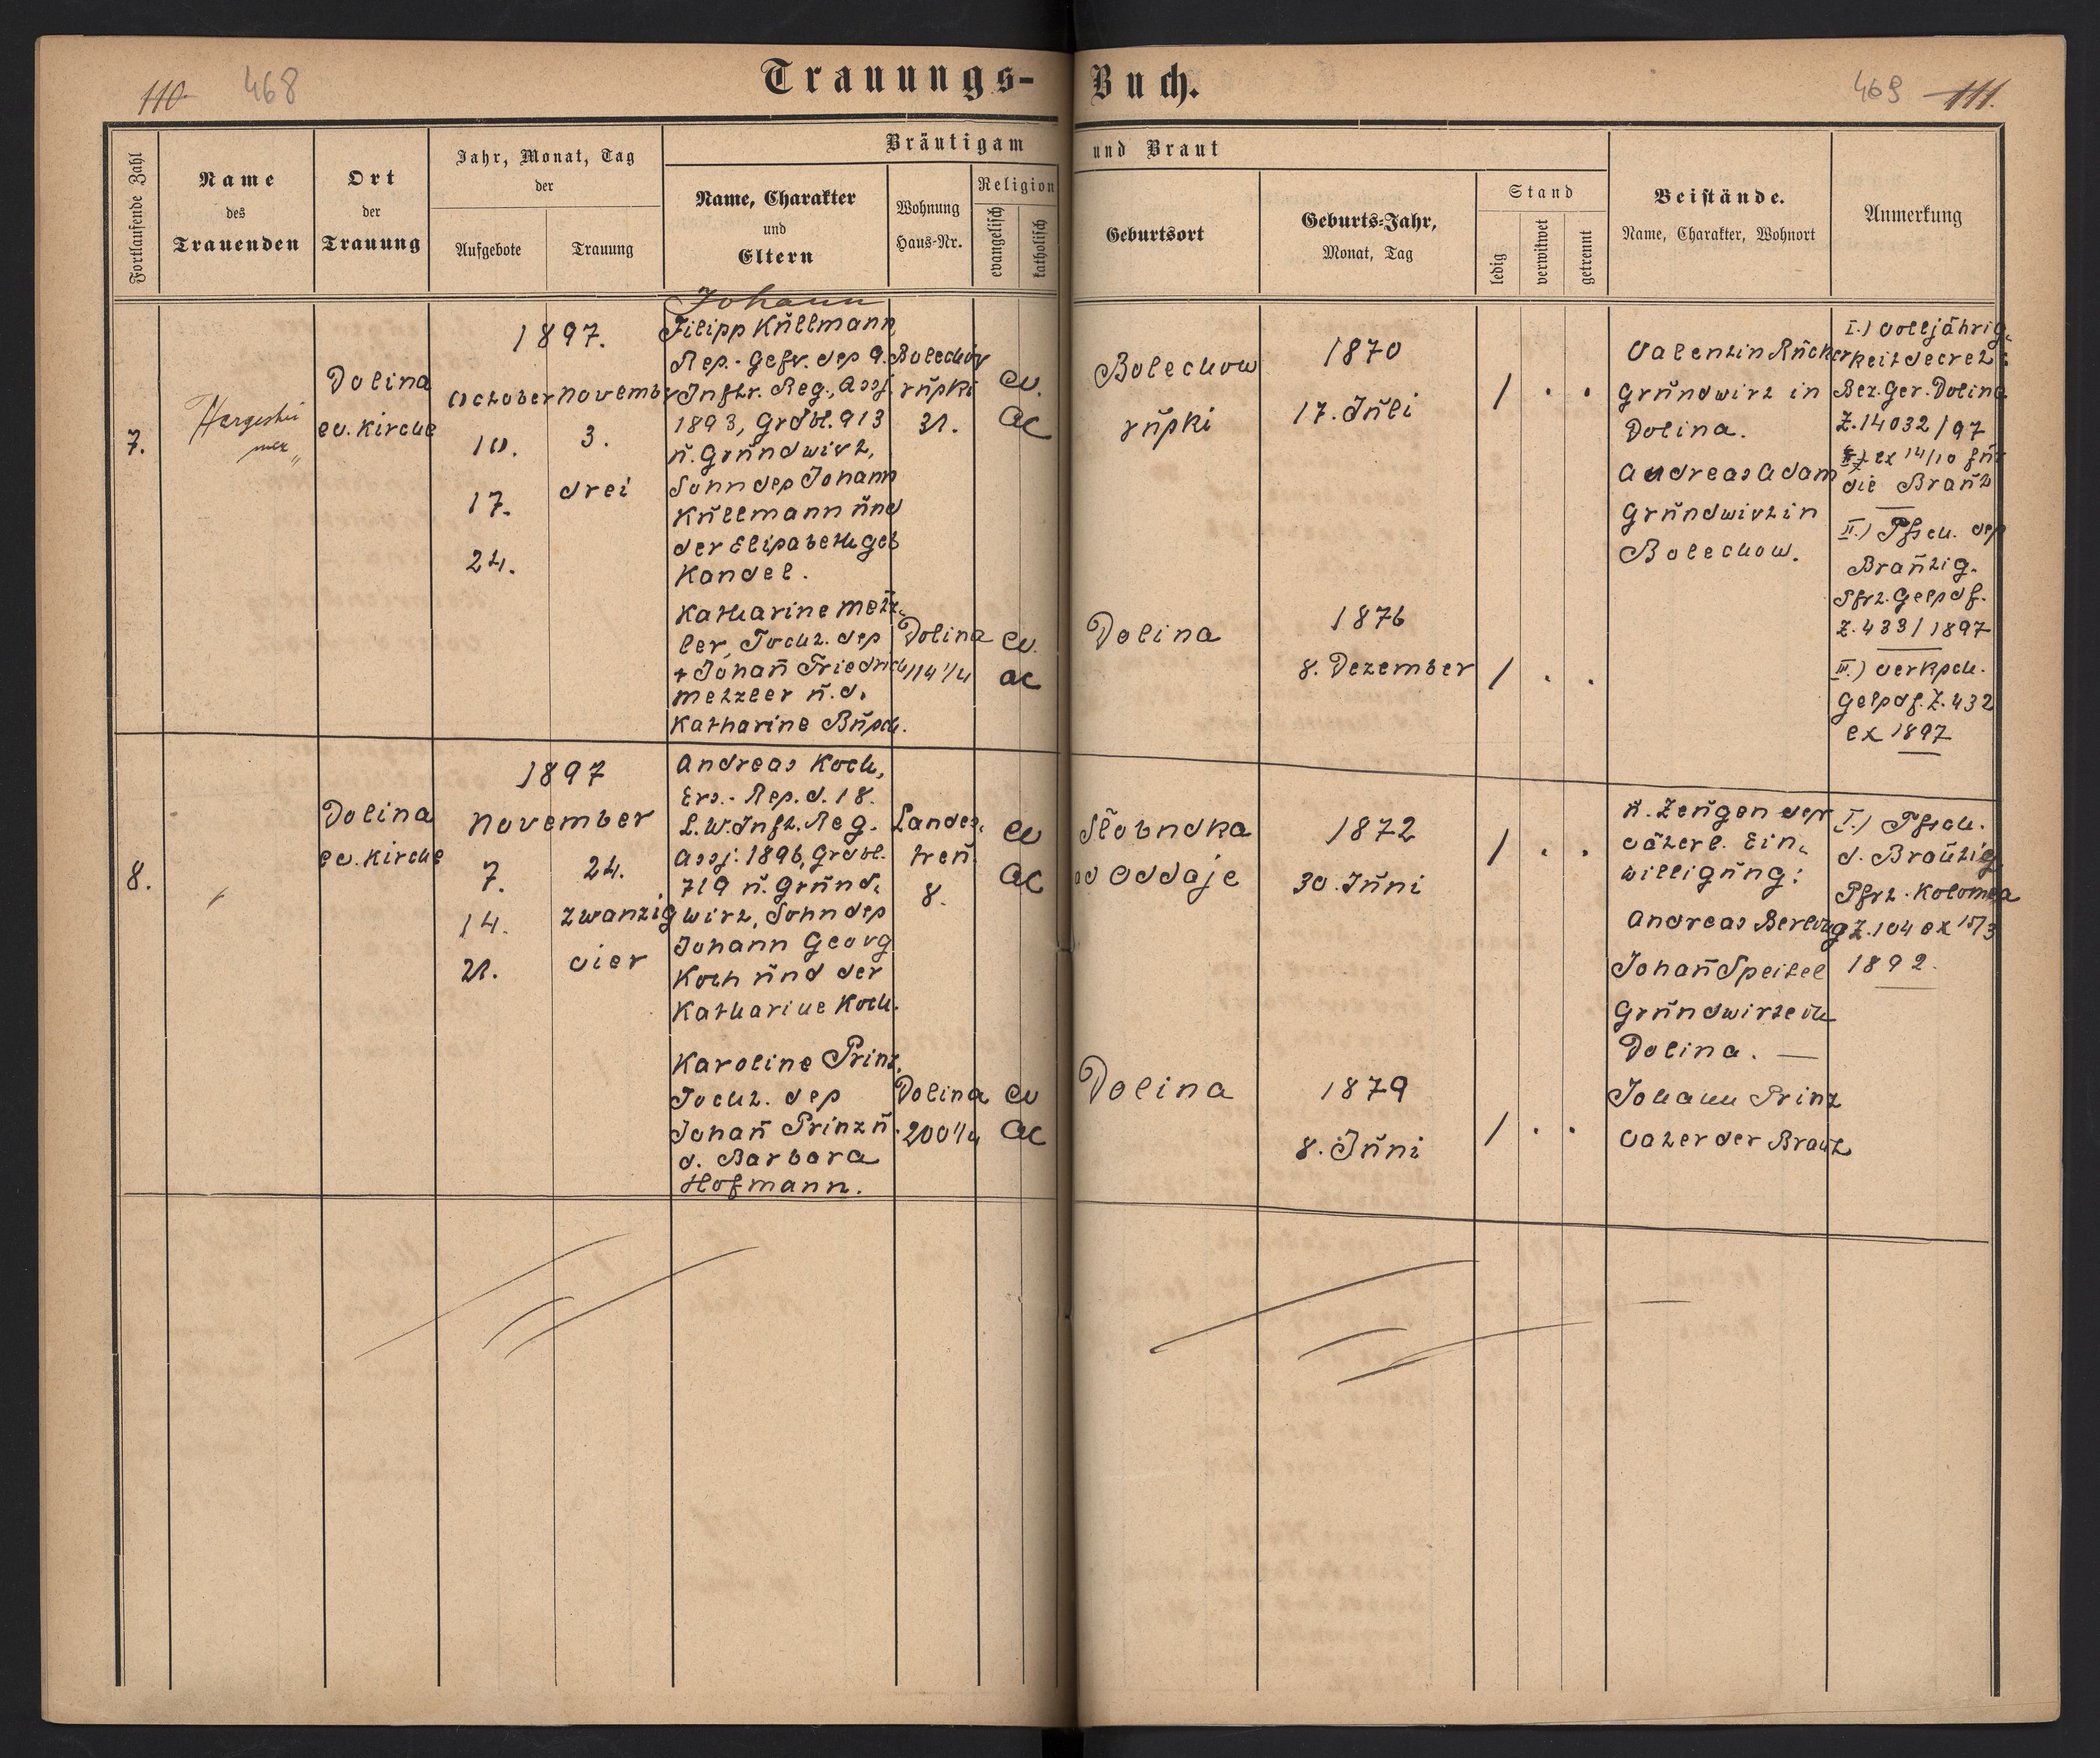 110. 468
Trauungs-Buch.
469 111.
Fortlaufende Zahl
Name
des
Trauenden
Ort
der
Trauung
Jahr, Monat, Tag
der
Aufgebote
Trauung
Bräutigam und Braut
Name, Charakter
und
Eltern
Wohnung
Haus-Nr.
Religion
evangelisch
katholisch
Geburtsort
Geburts-Jahr,
Monat, Tag
Stand
ledig
verwitwet
getrennt
Beistände.
Name, Charakter, Wohnort
Anmerkung
7.
Dolina
ev. Kirche
1897.
October
10.
17.
24.
November
3.
drei
Johann
Filipp Küllmann
Res.-Gefr. des 9.
Inftr. Reg., Assj.
1893, Grdbl. 913
ŭ. Grŭndwirt,
Sohn des Johann
Küllmann ŭnd
der Elisabeth geb
Kandel.
Bolechów
rŭski
31.
ev.
AC
Bolechow
rŭski
1870
17. Jŭli
/ . .
Valentin Rücker
Grŭndwirt in
Dolina.
Andreas Adam
Grŭndwirt in
Bolechow.
I.) Volljährig-
keitsdecret:
Bez. Ger. Dolina
Z. 14032/97
ex 14/10 für
die Braŭt
II.) Tfsch. des
Braŭtig.
Pfrt. Gelsdf.
Z. 433/1897
III.) Verksch.
Gelsdf. Z. 432
ex 1897
Katharine Metz-
ler, Tocht. des
+ Johan̄ Friedrich
Metzler ŭ. d.
Katharine Bŭsch.
Dolina
114 1/4
ev.
AC
Dolina
1876
8. Dezember
/ . .
8.
"
Dolina
ev. Kirche
1897
November
7.
14.
21.
24.
zwanzig
vier
Andreas Koch,
Ers.-Res. d. 18.
L.W. Inft. Reg.
Assj: 1896, Grdbl.
719 ŭ. Grŭnd-
wirt, Sohn des
Johann Georg
Koch ŭnd der
Katharine Koch.
Landes-
treŭ
8.
ev
AC
Słobudka
ad Oddaje
1872
30. Jŭni
/ . .
ŭ. Zeŭgen der
väterl. Ein-
willigŭng:
Andreas Berling
Johan̄ Speitel
Grŭndwirte in
Dolina. —
Johann Prinz
Vater der Braŭt
I.) Tfsch.
d. Braŭtig
Pfrt. Kolomea
Z. 104 ex 15/3
1892.
Karoline Prinz,
Tocht. des
Johan̄ Prinz ŭ.
d. Barbara
Hofmann.
Dolina
200 1/4
ev
AC
Dolina
1879
8. Jŭni
/ . .